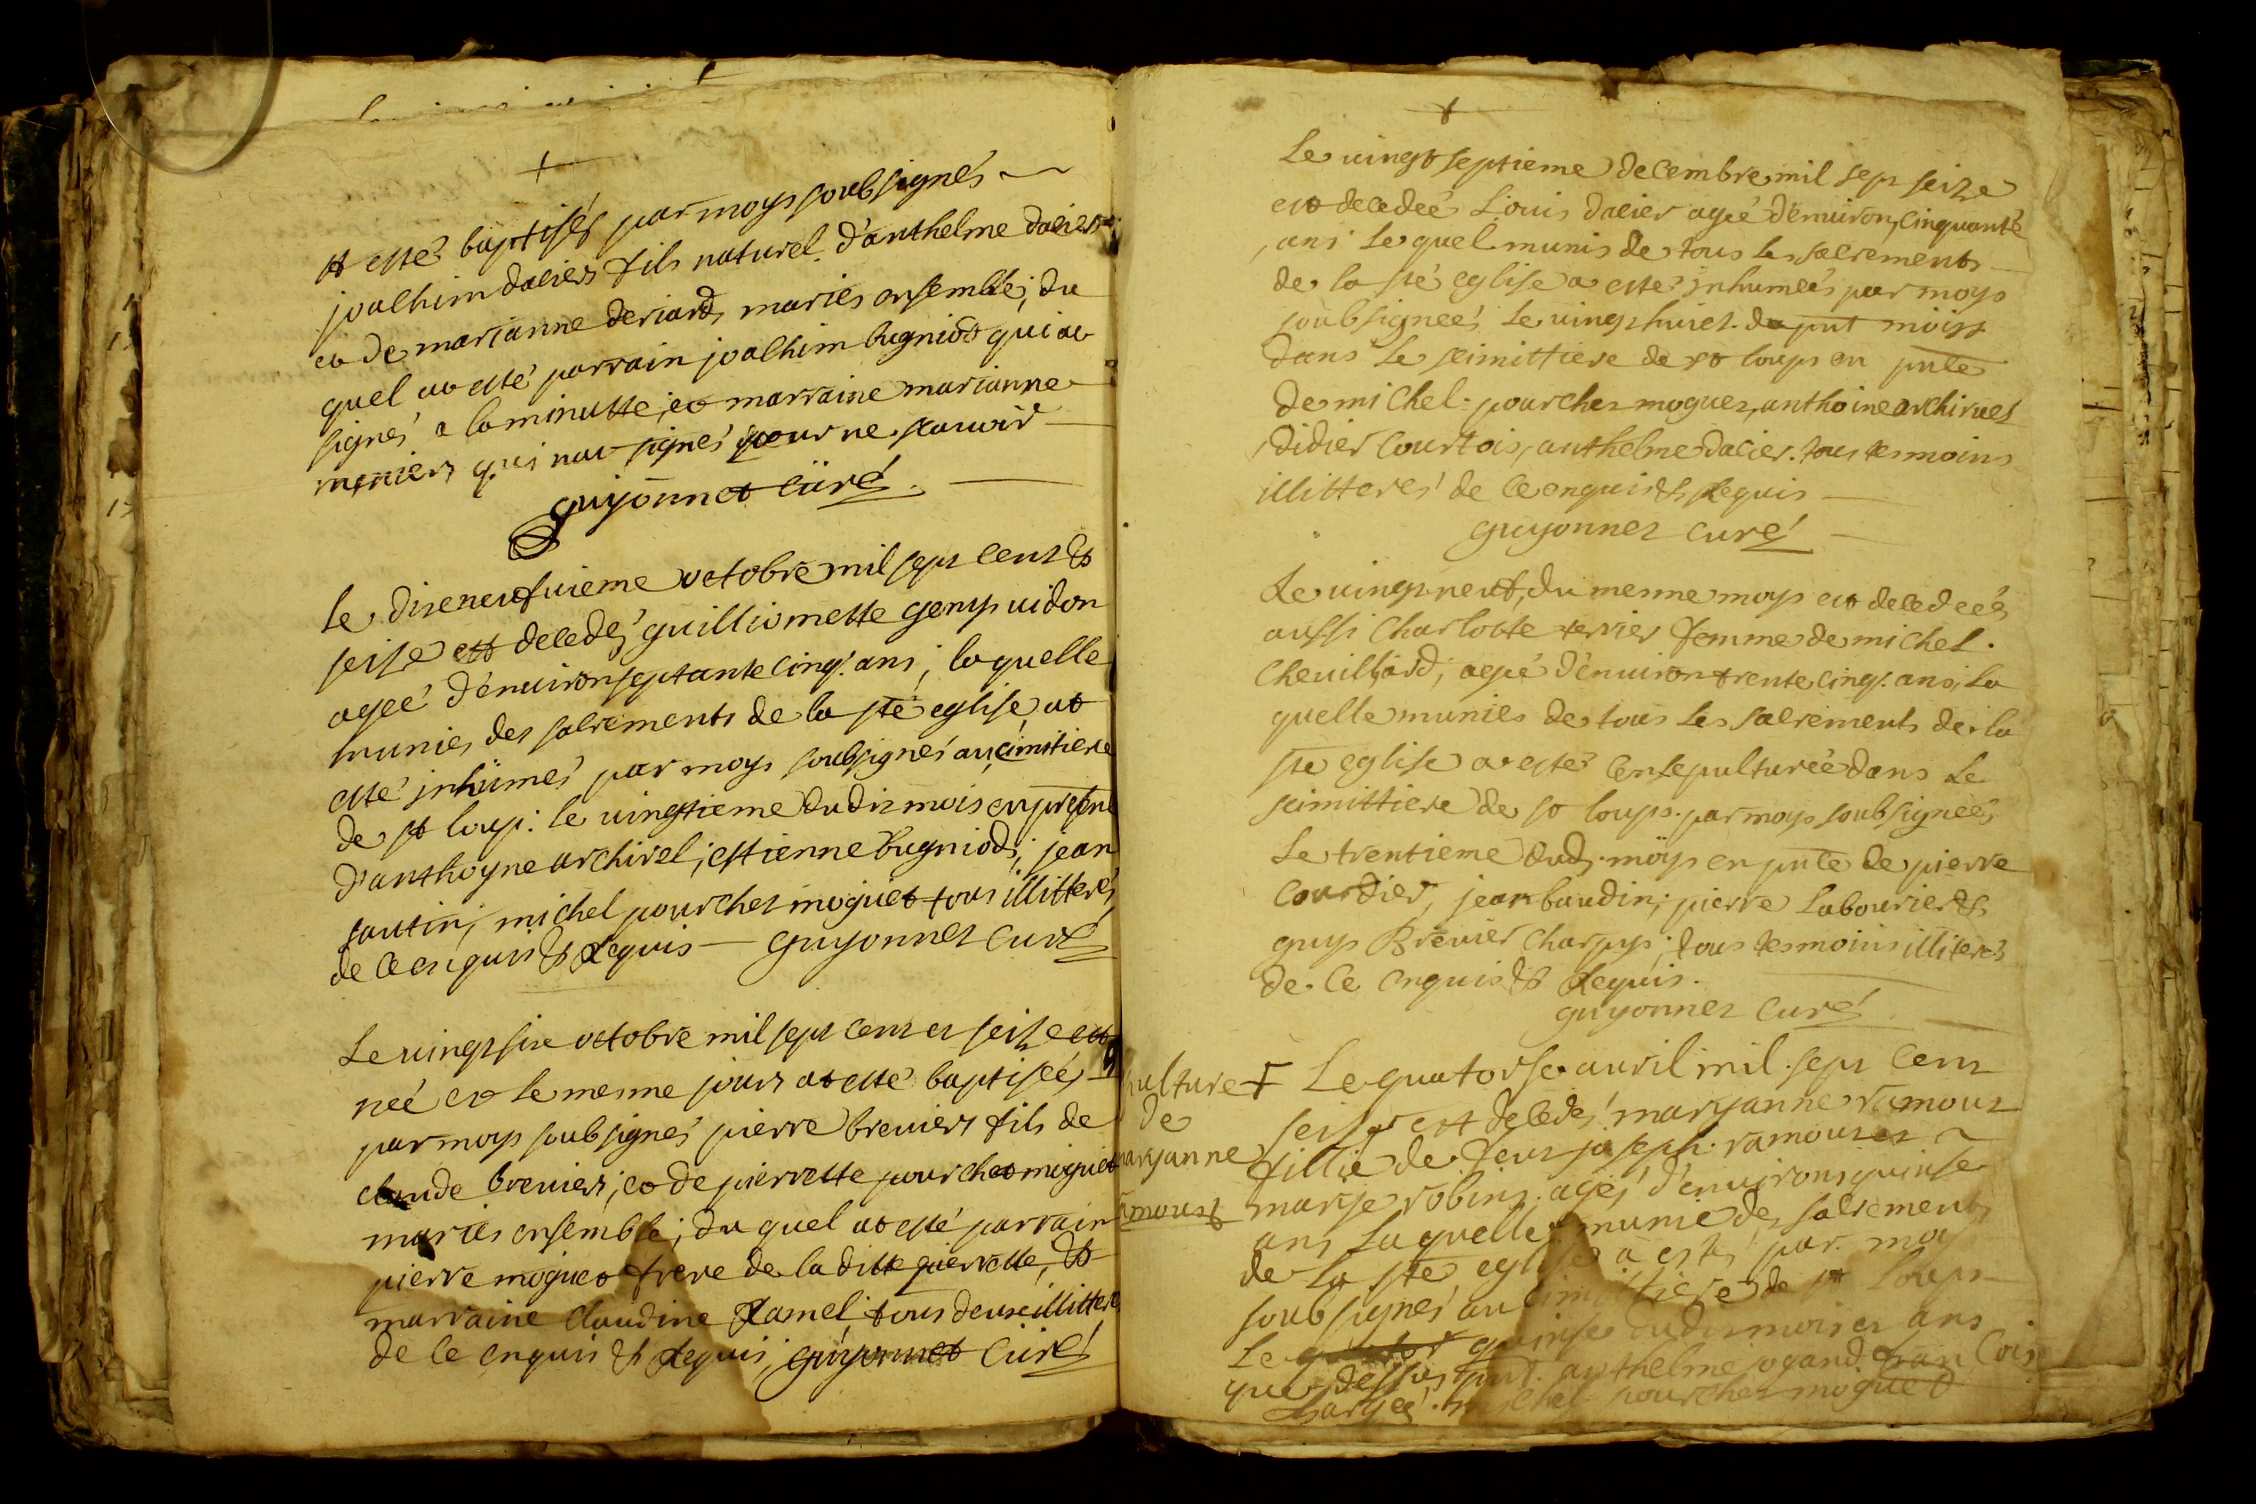 at esté baptisés par moys soubsignés
joalhim daciers fils naturel d'anthelme daciers
et de marianne deriard, mariés ensemble; du
quel at esté parrain joalhim bugniot qui at
signés a la minutte; et marraine marianne
qui nat signés pour ne scauoir
guyonnet curé
le diseneufuieme octobre mil sept cent et
seise est decedés guilliomette geny uidon
agéé d'enuiron septante cinq. ans; laquelle
munies des sacrements de la ste eglise, at
esté inhumés par moys soubsignés au cimitiere
de st loup: le uingtieme dudit mois en presne
d'anthoyne archirel; estienne bugniod; jean
sautin; michel pourchet moguet tous illitterés
de ce enquis et requis guyonnet curé
Le uingt six octobre mil sept cent et seise est
néé et le mesme jours at esté baptiséé
par moys soubsignés pierre breuiers fils de
claude breuiers; et de pierrette pourchet moguet
mariés ensemble; du quel at esté parrain
pierre moguet frere de la ditte pierrette, et
marraine claudine ramel; tous deux illittere
de ce enquis et requis guyonnet curé
Le uingt septieme decembre mil sept seize
est decedeé Louis dacier ageé d'enuiron cinquante
ans lequel munis de tous les sacrements
de la ste eglise a esté inhumeés par moys
soubsigneés le uingt huict. du pnt moiss
dans le scimittiere de st loups en pnte
de michel pourchet moguet, anthoine archiruel
didier courtois, anthelme dacier. tous tesmoins
illitteres de ce enquis et requis
guyonnet curé
Le uingt neuf, du mesme moys est decedeés
aussi charlotte terrier femme de michel
cheuilliard, agée d'enuiron trente cinq. ans, la
quelle munies de tous les sacrements de la
ste eglise a estés ensepultureé dans le
scimittiere de st loups. par moys soubsigneés
Le trentieme dud. moys en pnte de pierre
courdier, jean baudin; pierre labourier et
guys Breuier charpys; tous tesmoins illiteres
de ce enquis et requis.
guyonnet curé
ulture Le quatorse auril mil sept cent
de seise est decedés maryanne ramoux
aryanne fillie de feux joseph ramoux et
moux marye robins. agés d'enuirons quinse
ans laquelle munie des sacrements
de la ste eglise a estés par moy
soubsignés au cimittiere de st loups
Le quinse dudit mois et ans
que dessus pnt. anthelme ogand. francois
michel pourchet moguet